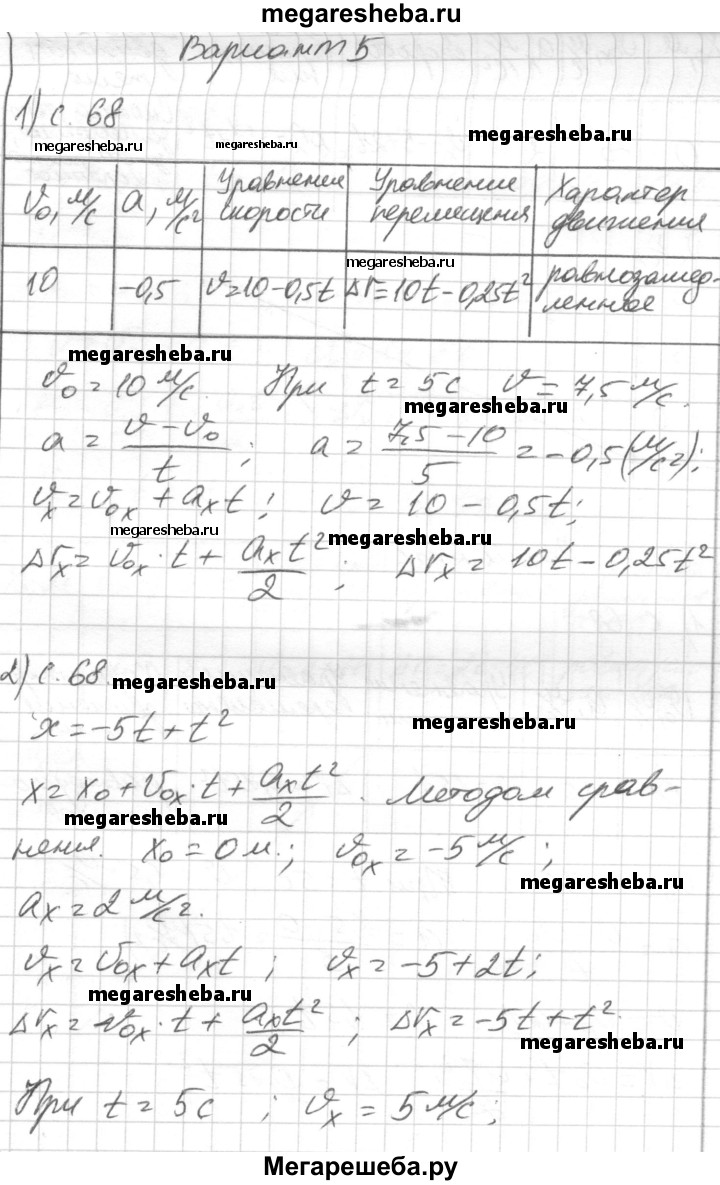 megaresheba.ru
Вариант 5
1) с. 68
megaresheba.ru megaresheba.ru megaresheba.ru
v₀, м/с a, м/с² Уравнение скорости Уравнение перемещения Характер движения
megaresheba.ru
10 -0,5 v=10-0,5t Δr=10t-0,25t² равнозамедленное
megaresheba.ru
v₀ = 10 м/с. При t = 5с v = 7,5 м/с.
megaresheba.ru
a = (v - v₀)/t ; a = (7,5 - 10)/5 = -0,5 (м/с²);
vₓ = v₀ₓ + aₓt ; v = 10 - 0,5t;
megaresheba.ru megaresheba.ru
Δrₓ = v₀ₓ · t + aₓt²/2 ; Δrₓ = 10t - 0,25t²
2) с. 68. megaresheba.ru
x = -5t + t²
megaresheba.ru
x = x₀ + v₀ₓ · t + aₓt²/2 . Методом срав-
megaresheba.ru
нения. x₀ = 0 м.; v₀ₓ = -5 м/с ;
megaresheba.ru
aₓ = 2 м/с².
vₓ = v₀ₓ + aₓt ; vₓ = -5 + 2t;
megaresheba.ru
Δrₓ = v₀ₓ · t + aₓt²/2 ; Δrₓ = -5t + t².
megaresheba.ru
При t = 5с ; vₓ = 5 м/с ;
Мегарешеба.ру